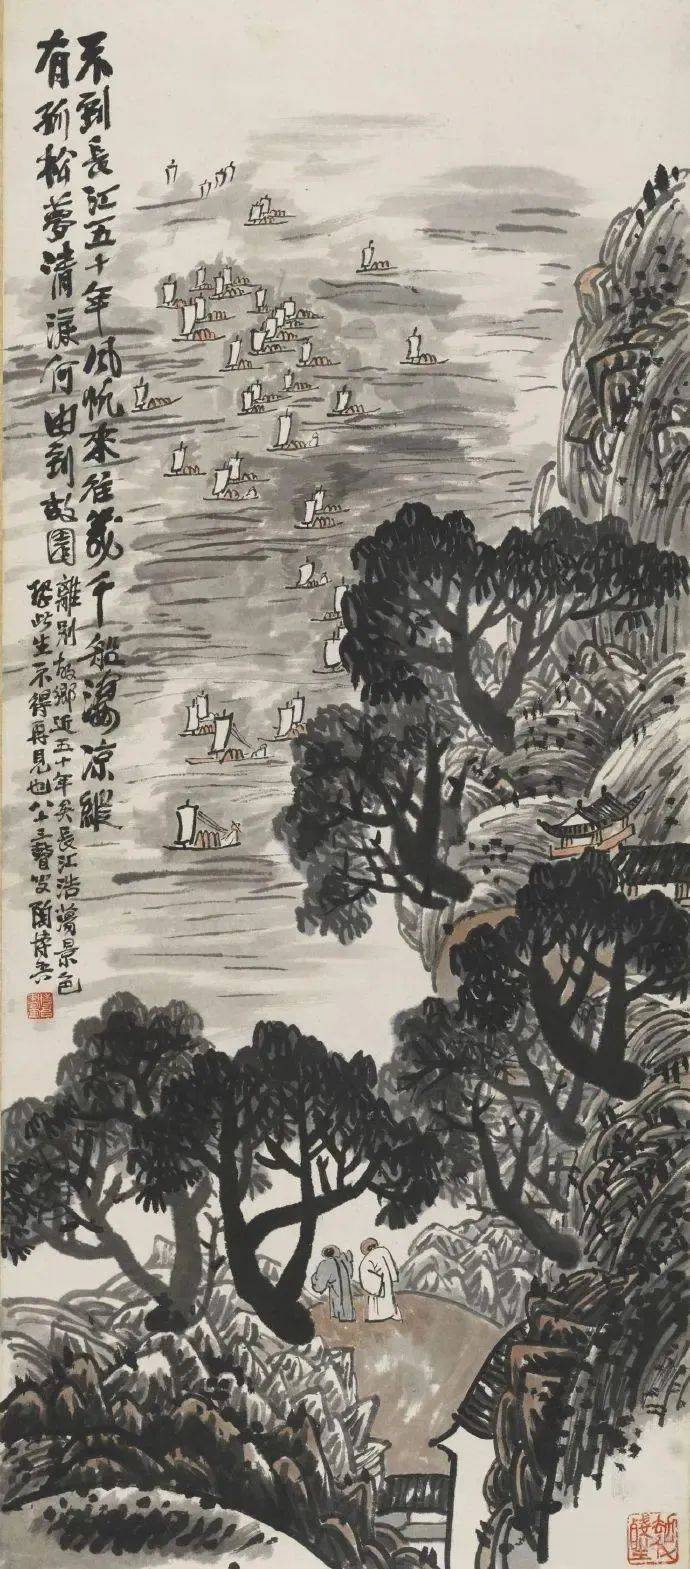 不到長江五十年風帆來往幾千船涼縱
有孤松夢清何由到故園
離別故鄉近五十年矣長江浩蕩景色
恐此生不得再見也八十三瞽叟陶博吾